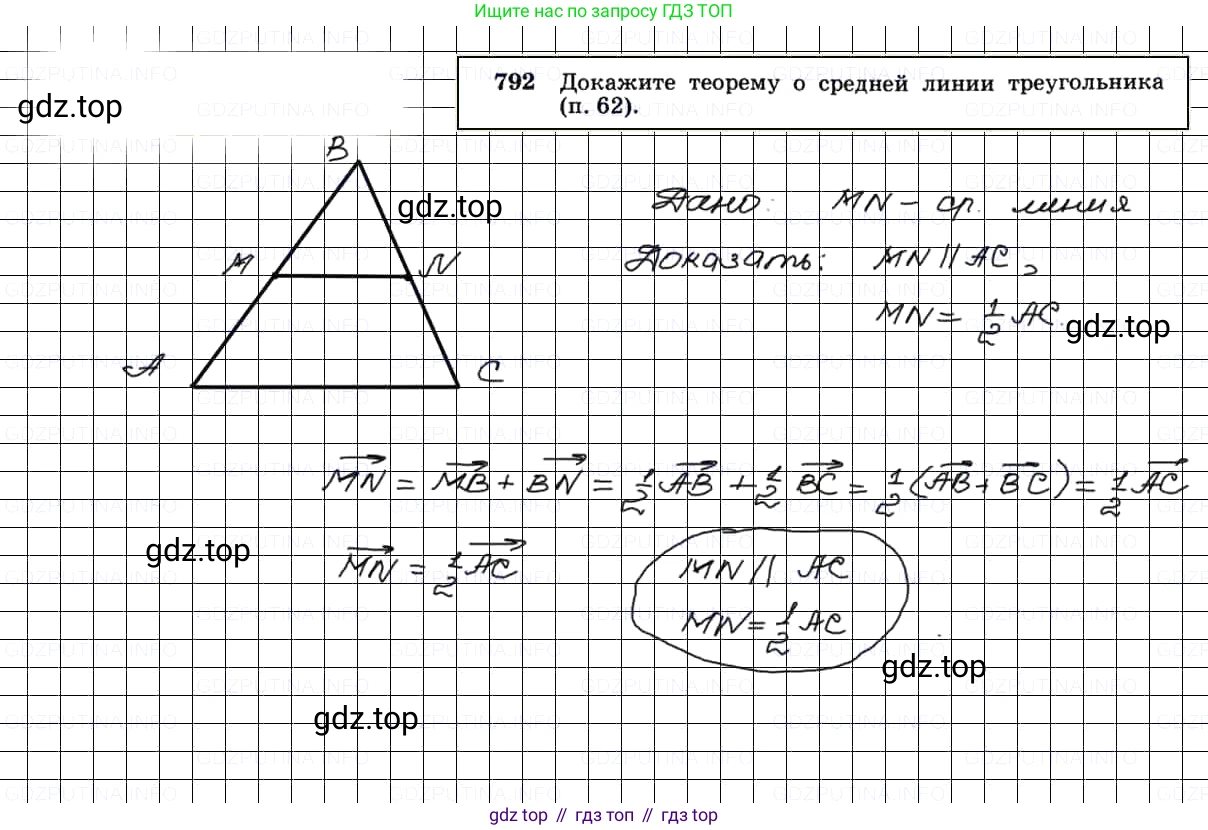 Ищите нас по запросу ГДЗ ТОП
792 Докажите теорему о средней линии треугольника
(п. 62).
gdz.top
B
gdz.top
Дано: MN – ср. линия
M N
Доказать: MN || AC,
MN = 1/2 AC.
gdz.top
A C
MN = MB + BN = 1/2 AB + 1/2 BC = 1/2 (AB + BC) = 1/2 AC
gdz.top
MN = 1/2 AC
MN || AC
MN = 1/2 AC
gdz.top
gdz.top
GDZPUTINA.INFO
gdz top // гдз топ // гдз top